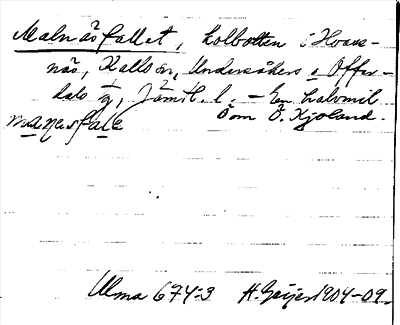 Malnäsfallet, holbotten i Hvass-
näs, Kallsön, Undersåkers o Offer-
dals sn, Jämtl. l. – En halvmil
öom Ö. Kjoland.
manesfale
Ulma 674:3 H. Geijer 1904–09.